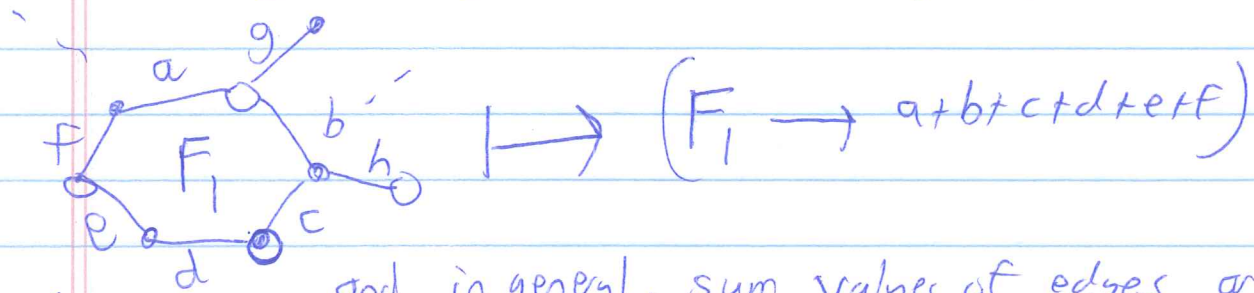 g
a
b
f
F₁
h
e
c
d
⟼ (F₁ → a+b+c+d+e+f)
and in general, sum values of edges